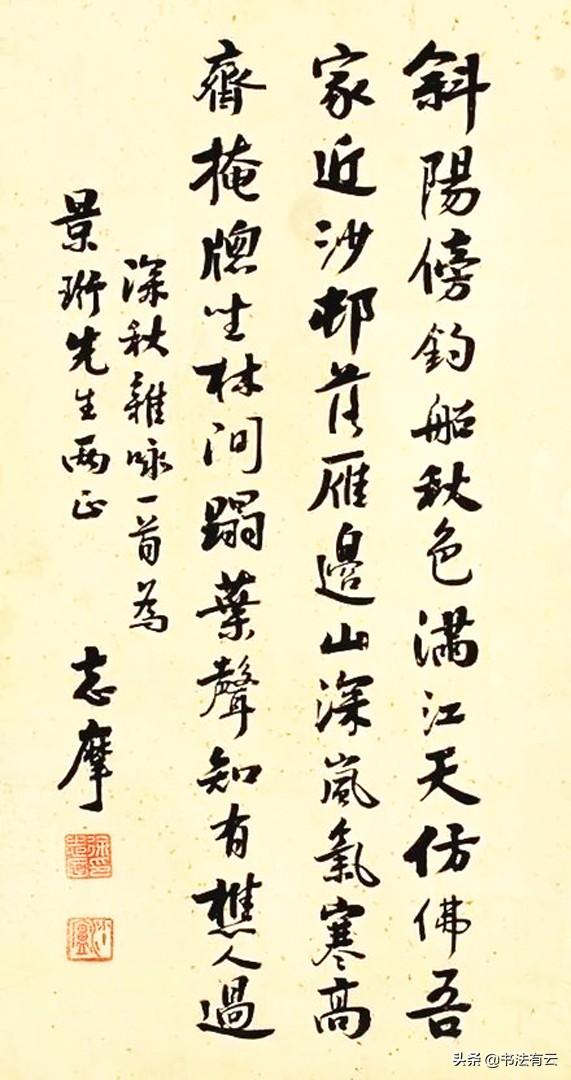 斜陽傍釣船秋色滿江天仿佛吾
家近沙邨落雁邊山深嵐氣寒高
齊掩牕坐林間蹋葉聲知有樵人過
深秋雜咏一首為
景珩先生兩正
志摩
头条 @书法有云